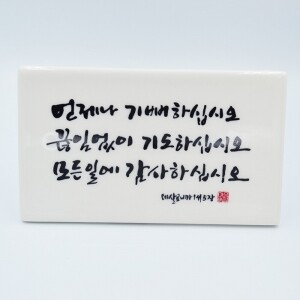 언제나 기뻐하십시오
끊임없이 기도하십시오
모든일에 감사하십시오
데살로니카1서5장